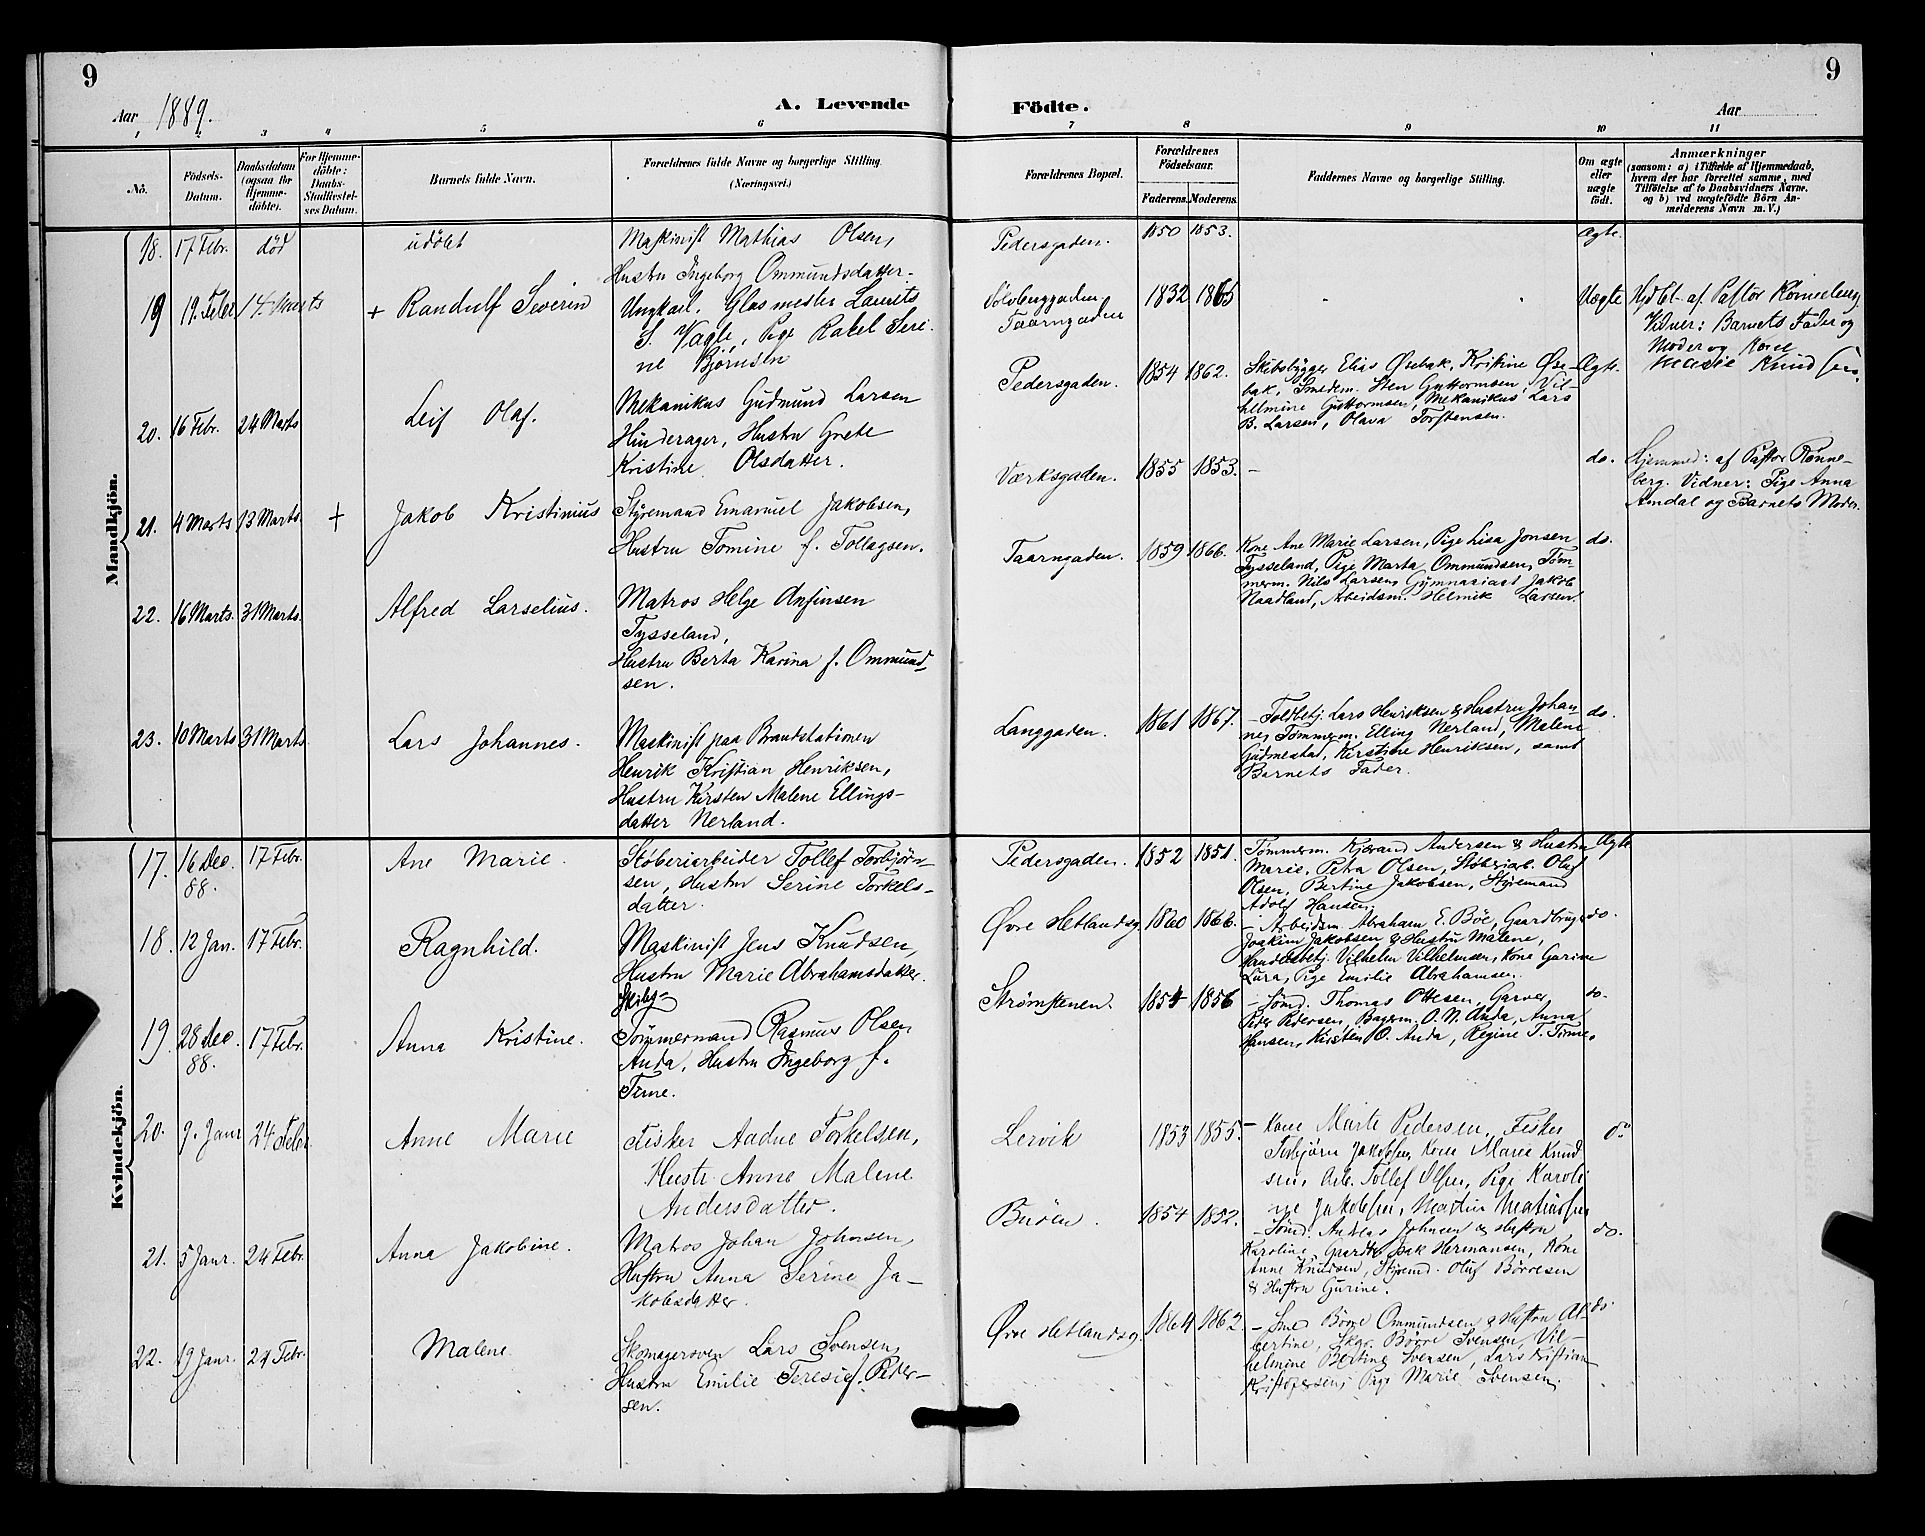 9
Aar 1889.
A. Levende
Födte.
Aar
9
1
2
3
4
5
6
7
8
9
10
11
No.
Födsels-
Datum.
Daabsdatum
(ogsaa for
Hjemme-
døbte).
For Hjemme-
döbte:
Daabs-
Stadfæstel-
ses Datum.
Barnets fulde Navn.
Forældrenes fulde Navne og borgerlige Stilling.
(Næringsvei.)
Forældrenes Bopæl.
Forældrenes
Födselsaar.
Faderens.
Moderens.
Faddernes Navne og borgerlige Stilling.
Om ægte
eller
uægte
födt.
Anmærkninger
(saasom: a) i Tilfælde af Hjemmedaab,
hvem der har forrettet samme, med
Tilföielse af to Daabsvidners Navne,
og b) ved uægtefödte Börn An-
melderens Navn m. V.)
Mandkjön.
18. 17 Febr. död udöbt
Maskinist Mathias Olsen,
Hustru Ingeborg Ommundsdatter.
Pedersgaden. 1850 1853. Ægte.
19 19. Febr 14. Marts + Randulf Severin
Ungkarl, Glasmester Laurits
S. Vagle, Pige Rakel Seri-
ne Bjørnsen
Sölvberggaden
Taarngaden
1832 1865 Uægte
Hjdbt. af Pastor Rönneberg
Vidner: Barnets Fader og
Moder og
Knudsen.
20. 16 Febr. 24 Marts Leif Olaf.
Mekanikus Gudmund Larsen
Hinderager, Hustru Grete
Kristine Olsdatter.
Pedersgaden. 1854 1862.
Skibsbygger Elias Øsebak, Kristine Øse-
bak, Smedem. Sten Guttormsen, Vil-
helmine Guttormsen, Mekanikus Lars
B. Larsen, Olava Torstensen.
Ægte.
21. 4 Marts 13 Marts. + Jakob Kristinius
Styremand Emanuel Jakobsen,
Hustru Tomine f. Tollagsen.
Værksgaden. 1855 1853. – do.
Hjemmed: af Pastor Rønne-
berg. Vidner: Pige Anna
Aendal og Barnets Moder.
22. 16 Marts. 31 Marts. Alfred Larselius.
Matros Helge Anfinsen
Tysseland,
Hustru Berta Karina f. Ommund-
sen.
Taarngaden. 1859 1866.
Kone Ane Marie Larsen, Pige Lisa Jonsen
Tysseland, Pige Marta Ommundsen, Töm-
merm. Nils Larsen, Gymnasiast Jakob
Naadland, Arbeidsm. Helmik Larsen.
do.
23. 10 Marts 31 Marts. Lars Johannes.
Maskinist paa Brandstationen
Henrik Kristian Henriksen,
Hustru Kirsten Malene Ellings-
datter Nerland.
Langgaden. 1861 1867.
– Toldbetj. Lars Henriksen & Hustru Johan-
ne, Tömmerm. Elling Nerland, Malene
Gudmestad, Kirstine Henriksen, samt
Barnets Fader.
do.
Kvindekjön.
17. 16 Dec.
88.
17 Febr. Ane Marie.
Støberiarbeider Tollef Torbjørn-
sen, Hustru Serine Torkels-
datter.
Pedersgaden. 1852 1851.
Tømmerm. Kjørand Andersen & Hustru
Marie, Petra Olsen, Støberiarb. Oluf
Olsen, Bertine Jakobsen, Styremand
Adolf Hansen.
Ægte
18. 12 Jan. 17 Febr. Ragnhild.
Maskinist Jens Knudsen,
Hustru Marie Abrahamsdatter.
Øvre Hetlandsg. 1860 1866.
– Arbeidsm. Abraham E. Böe, Gaardbruger
Joakim Jakobsen & Hustru Malene,
Handelsbetj. Vilhelm Vilhelmsen, Kone Gurine
Lura, Pige Emilie Abrahamsen.
do.
19. 28 Dec.
88.
17 Febr. Anna Kristine.
Skibs-
Tömmermand Rasmus Olsen
Anda, Hustru Ingeborg f.
Time.
Strømstenen. 1854 1856
– Sömd. Thomas Ottesen, Garver
Peder Pedersen, Bagerm. O. N. Anda, Anna
Hansen, Kirsten O. Anda, Regine T. Time.
do.
20. 9. Janr 24 Febr. Anne Marie
Fisker Aadne Torkelsen,
Hustr. Anne Malene
Andersdatter.
Lervik 1853 1855.
– Kone Marte Pedersen, Fisker
Torbjörn Jakobsen, Kone Marie Knud
sen, Arb. Tollef Olsen, Pige Karoli
ne Jakobsen, Martin Mathiassen
do
21. 5 Janr. 24 Febr. Anna Jakobine.
Matros Johan Johnsen,
Hustru Anna Serine Ja-
kobsdatter.
Buröen. 1854 1852.
– Sömd. Andreas Johnsen & Hustru
Karoline, Gaardbr. Isak Hermansen, Kone
Anne Knudsen, Styrmd. Oluf Börresen
& Hustru Gurine.
do.
22. 19 Janr. 24 Febr. Malene.
Skomagersven Lars Svensen,
Hustru Emilie Teresie f. Peder-
sen.
Øvre Hetlandsg. 1864 1862.
– Smed Börre Ommundsen & Hustru Al-
bertine, Skgr. Börre Svensen, Vil-
helmine Bertine Svensen, Lars Kristian
Kristofersen, Pige Marie Svensen.
do.